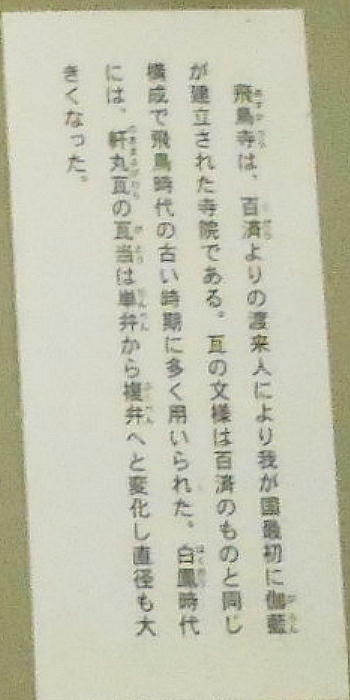 飛鳥寺は、百済よりの渡来人により我が国最初に伽藍
が建立された寺院である。瓦の文様は百済のものと同じ
構成で飛鳥時代の古い時期に多く用いられた。白鳳時代
には、軒丸瓦の瓦当は単弁から複弁へと変化し直径も大
きくなった。